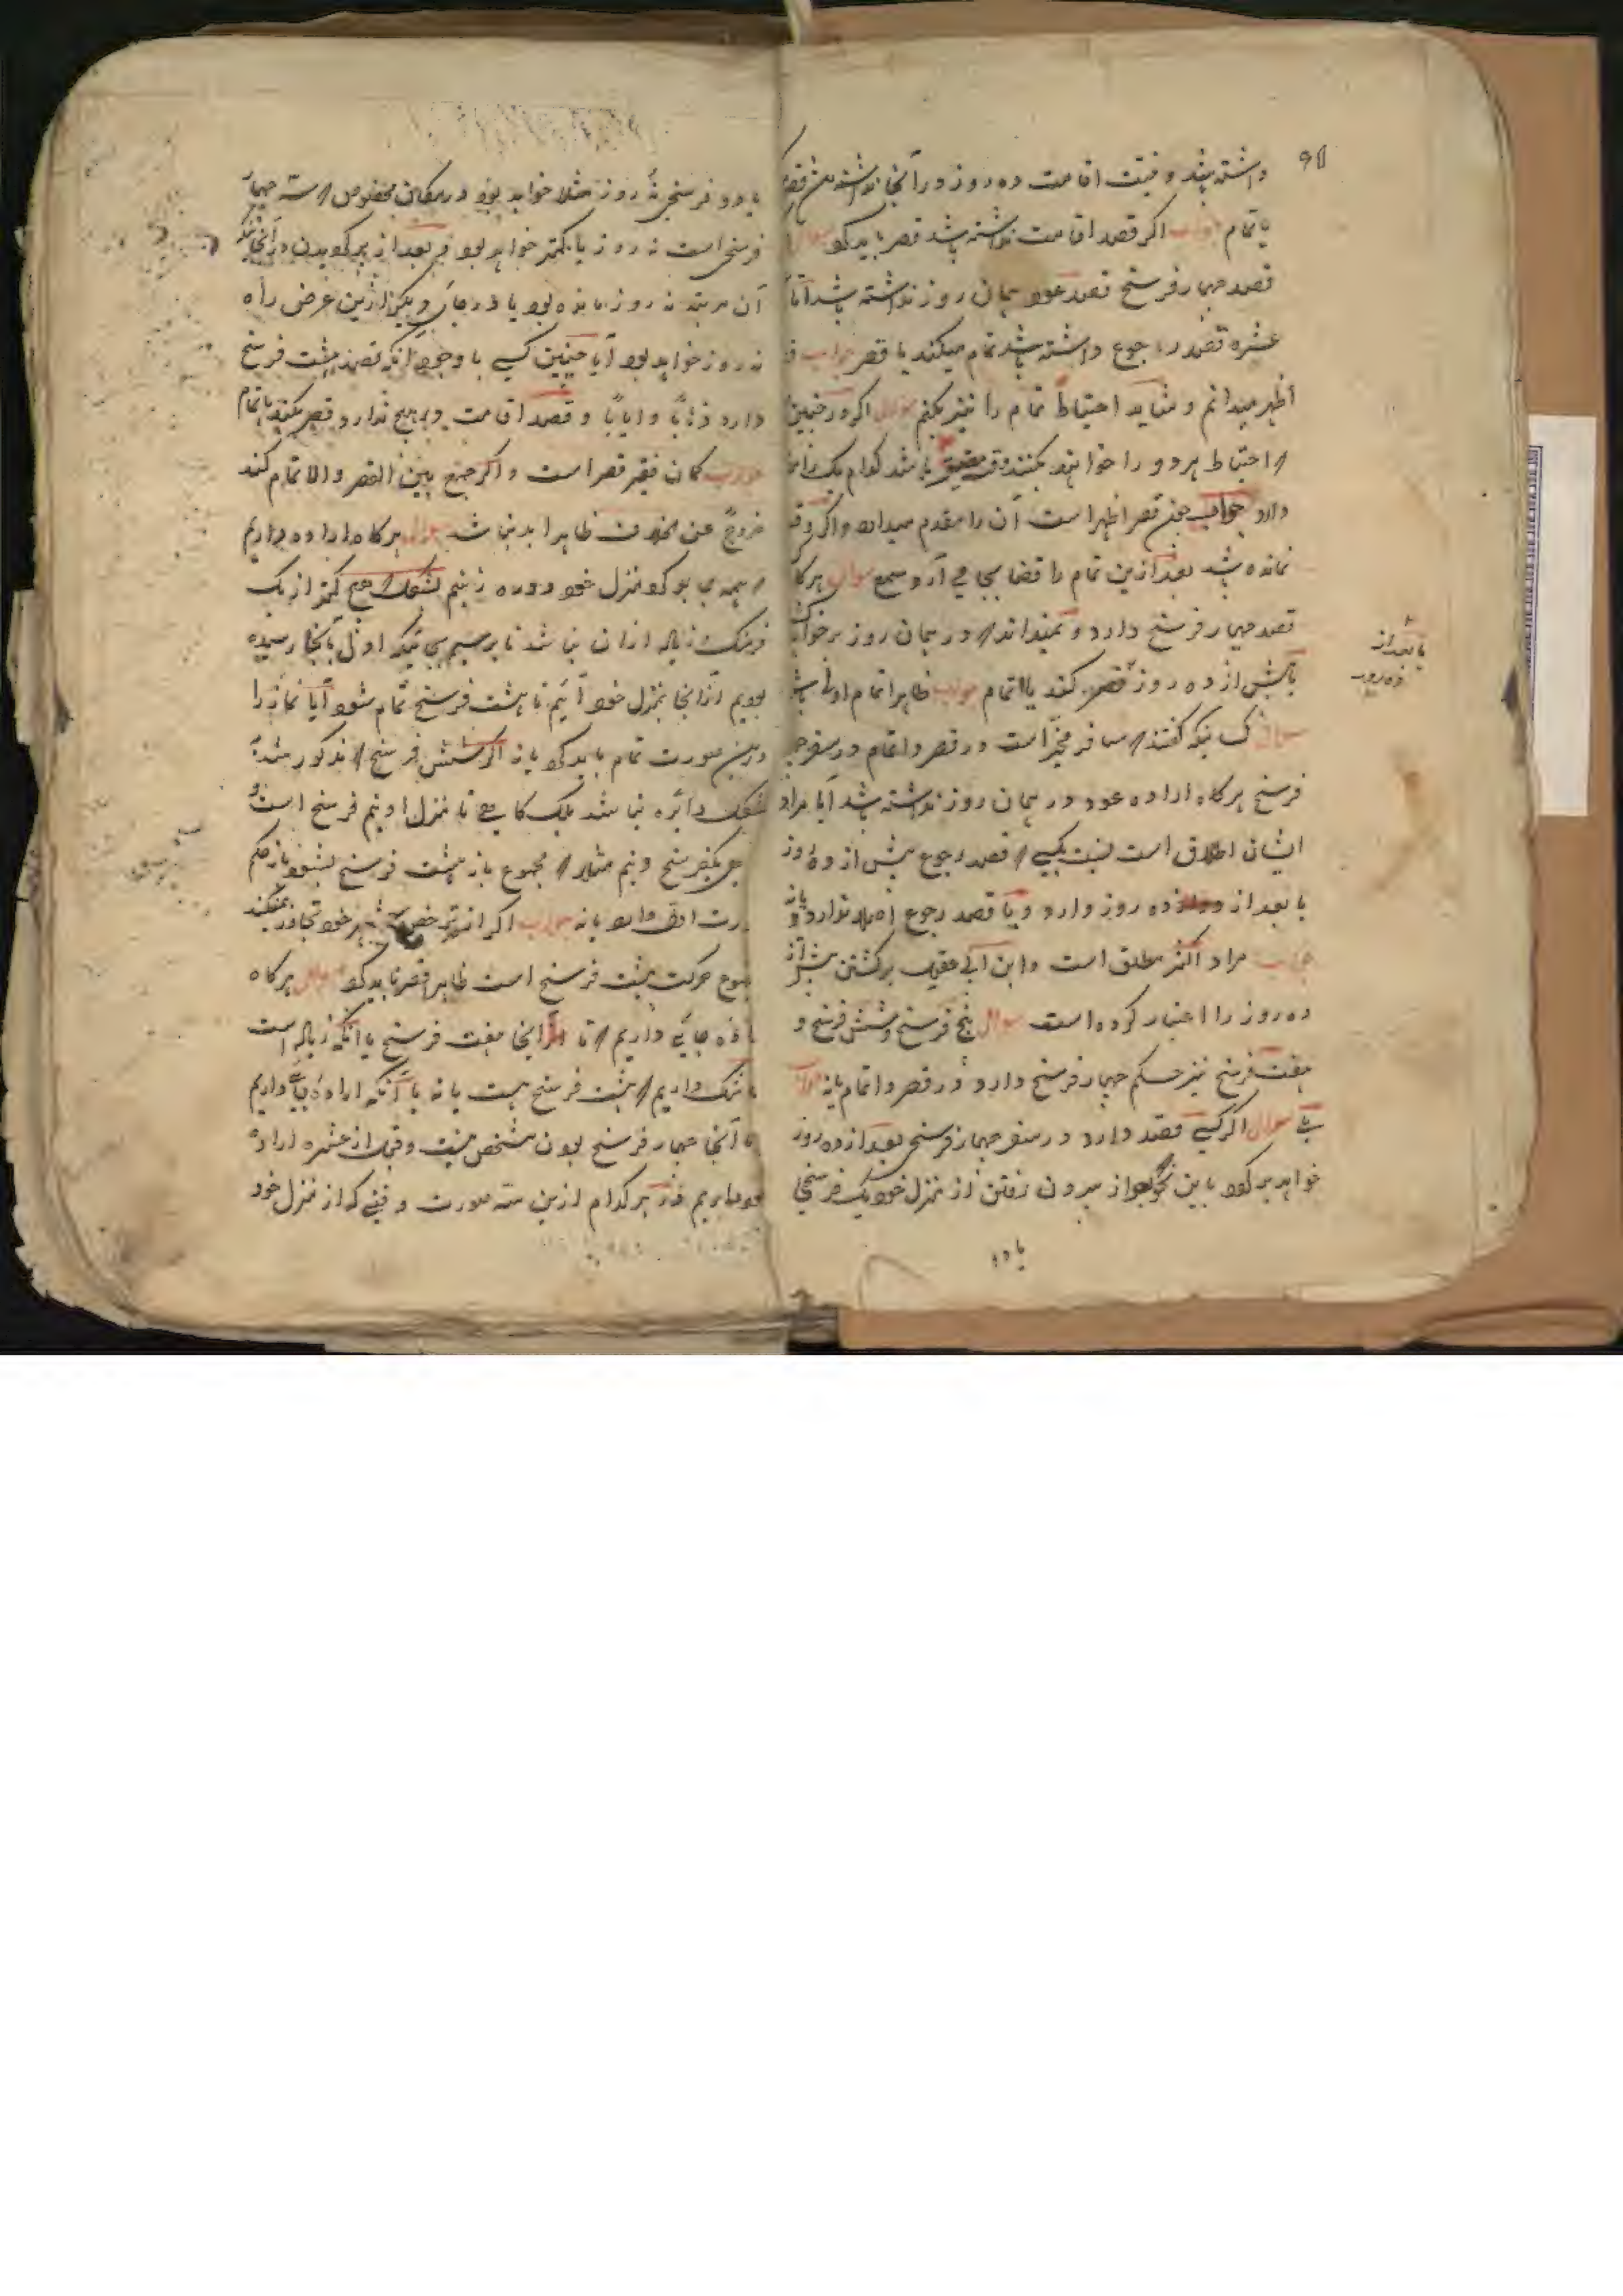 داشته باشد و نیت اقامت ده روز در آنجا نداشته باشد قصر
یا تمام جواب اگر قصد اقامت نداشته باشد قصر باید کرد سوال
قصد چهار فرسخ قصد عود همان روز نداشته باشد اما
عشره قصد رجوع داشته باشد تمام میکند یا قصر جواب
اظهر میدانم و شاید احتیاطا تمام را نیز بکنم سوال اگر در چنین
که احتیاط هر دو را خواهند بکنند وقت مضیق باشد کدام یک را
دارد جواب چون قصر اظهر است آن را مقدم میدارد و اگر وقت
نمانده باشد بعد ازین تمام را قضا بجا می آرد سوال هرگاه
قصد چهار فرسخ دارد و نمیداند که در همان روز بر خواهد
یا پیش از ده روز قصر کند یا اتمام جواب ظاهرا تمام اولی باشد
سوال کسانیکه گفتند که مسافر مخیر است در قصر و اتمام در سفر
فرسخ هرگاه اراده عود در همان روز نداشته باشد آیا مراد
ایشان اطلاق است نسبت بکسی که قصد رجوع پیش از ده روز
یا بعد از ده روز دارد و یا قصد رجوع اصلا ندارد یا نه
جواب مراد اکثر مطلق است و ابن ابی عقیل برگشتن پیش از
ده روز را اعتبار کرده است سوال پنج فرسخ و شش فرسخ و
هفت فرسخ نیز حکم چهار فرسخ دارد در قصر و اتمام یا نه جواب
بلی سوال اگر کسی قصد دارد در سفر چهار فرسخی بعد از ده روز
خواهد بر گردد باین نحو که بعد از بیرون رفتن از منزل خود یک فرسخی
یا دو
یا بعد از
ده روز
یا دو فرسخی نه روز مثلا خواهد بود در مکان مخصوص که سه چهار
فرسخی است نه روز یا کمتر خواهد بود و بعد از بر گردیدن در آنجا که
آن مرتبه نه روز مانده بود یا در جای دیگر ازین عرض راه
نه روز خواهد بود آیا چنین کسی با وجود آنکه قصد هشت فرسخ
دارد ذهابا و ایابا و قصد اقامت هیچ ندارد قصر میکند یا تمام
جواب گمان فقیر قصر است و اگر جمع بین القصر و الاتمام کند
خروجا عن الخلاف ظاهرا بد نباشد سوال هرگاه اراده داریم
که همه بر گرد منزل خود دوره زنیم لشکر که هیچ کمتر از یک
فرسنگ زیاده از آن نباشد تا برسیم بجائیکه اول بآنجا رسیده
بودیم از آنجا بمنزل خود آئیم تا هشت فرسخ تمام شود آیا نماز را
درین صورت تمام باید کرد یا نه اگر شش فرسخ که مذکور شد
دایره نباشد بلکه گاهی تا منزل او نیم فرسخ است و
یکفرسخ و نیم مثلا که مجموع باز هشت فرسخ بشود باز حکم
صورت اول دارد یا نه جواب اگر از ترخص شهر خود تجاوز میکند
مجموع حرکت هشت فرسخ است ظاهرا قصر باید کرد سوال هرگاه
اراده جایی داریم که تا اینجا هفت فرسخ یا آنکه زیاده است
شک داریم که هشت فرسخ هست یا نه یا آنکه اراده جایی داریم
تا آنجا چهار فرسخ بودن مشخص نیست و قبل از عشره اراده
عود داریم در هر کدام ازین سه صورت وقتی که از منزل خود